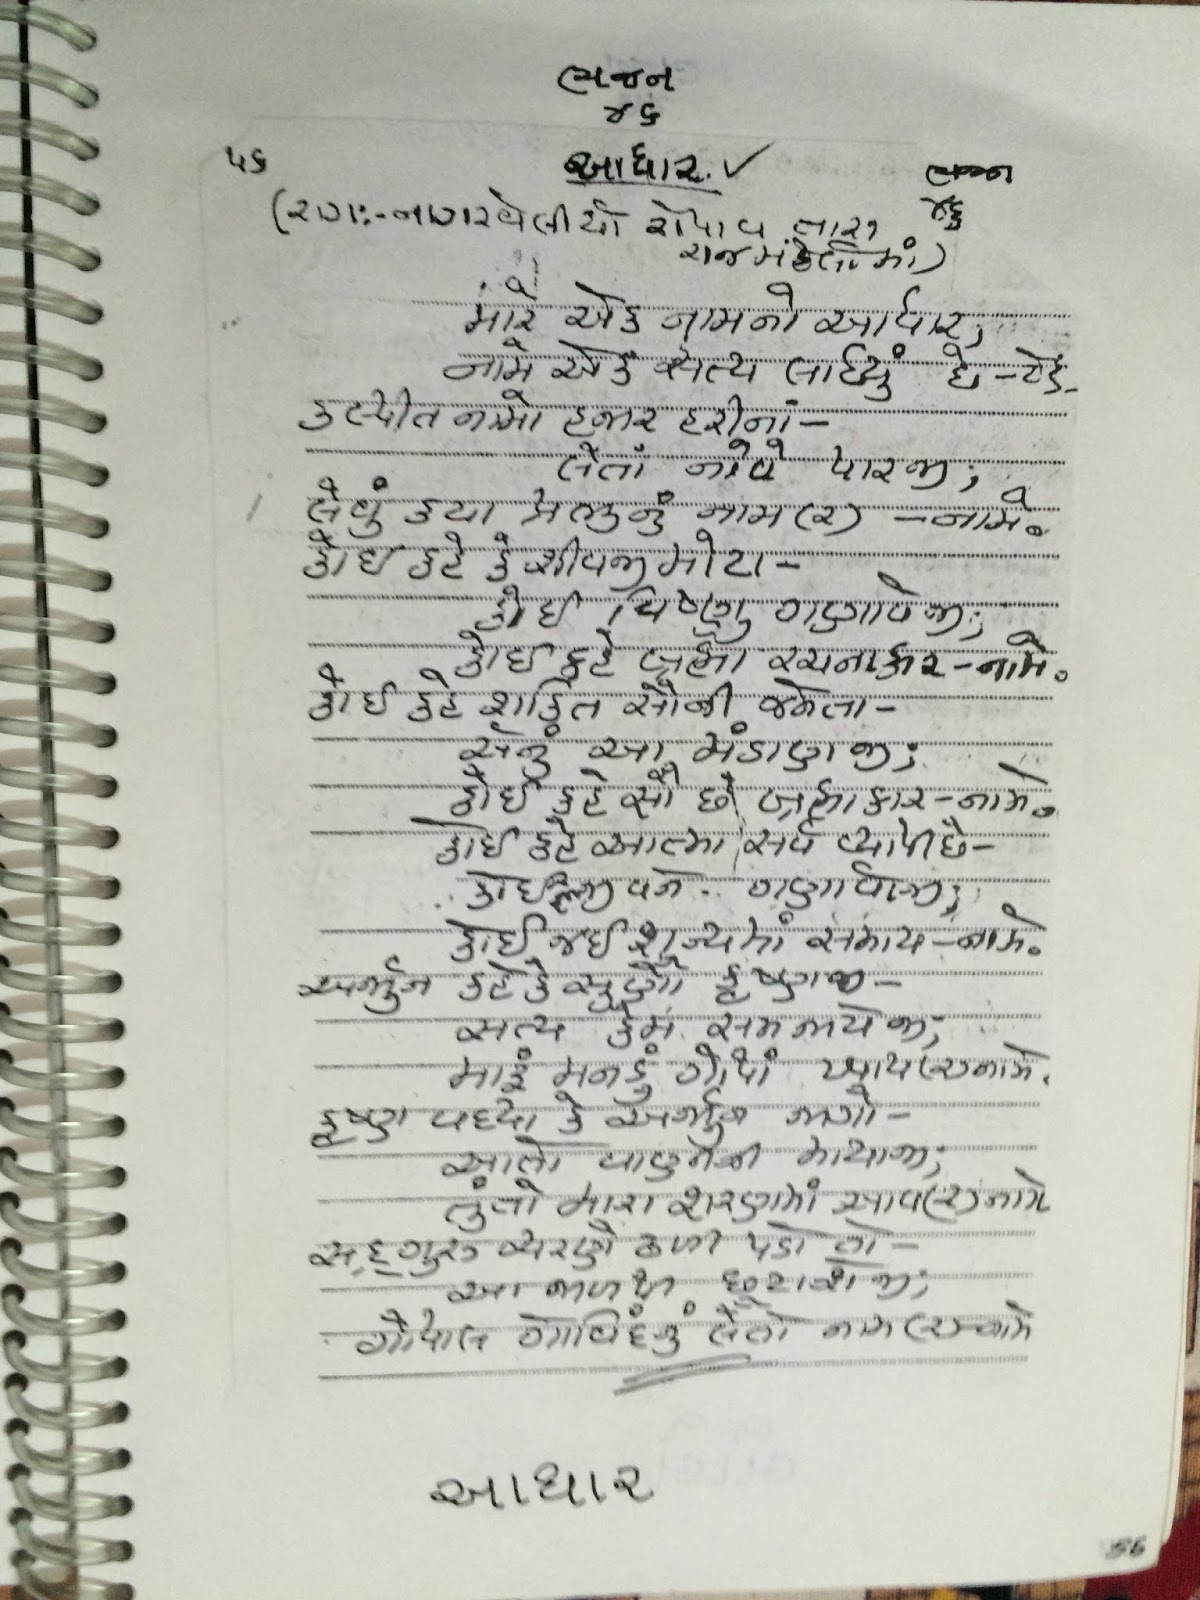 ભજન
૪૬
૫૬
આધાર. ✓
ભજન
૪૬
(રાગઃ-નાગરવેલીયો રોપાવ તારા
રાજ મહેલોમાં)
મારે એક નામનો આધાર;
નામે એક સત્ય લાધ્યું છે-ટેક.
કલ્પીત નામો હજાર હરીનાં-
લેતાં નાવે પારજી;
લેવું કયા પ્રભુનું નામ(ર) -નામે.
કોઈ કહે કે શીવજી મોટા-
કોઈ વિષ્ણુ ગણાવેજી;
કોઈ કહે બ્રહ્મા રચનાકાર-નામે.
કોઈ કહે શકિત સૌની જનેતા-
એનું આ મંડાણજી;
કોઈ કહે સૌ છે બ્રહ્માકાર-નામે.
કોઈ કહે આત્મા સર્વ વ્યાપીછે-
કોઈ જીવને ગણાવેજી;
કોઈ જઈ શૂન્યમાં સમાય-નામે.
અર્જુન કહે કે સુણો કૃષ્ણજી-
સત્ય કેમ સમજાયેજી;
મારૂં મનડું ગોથાં ખાય(ર)નામે.
કૃષ્ણ વદ્યા કે અર્જુન જાગો-
આતો વાણીની માયાજી;
તુંતો મારા શરણમાં આવ(ર)નામે
સદ્ગુરુ ચરણે ઢળી પડો તો-
આ જાળથી છુટાશેજી;
ગોપાલ ગોવિંદનું લેતો નામ(ર)નામે
આધાર
56